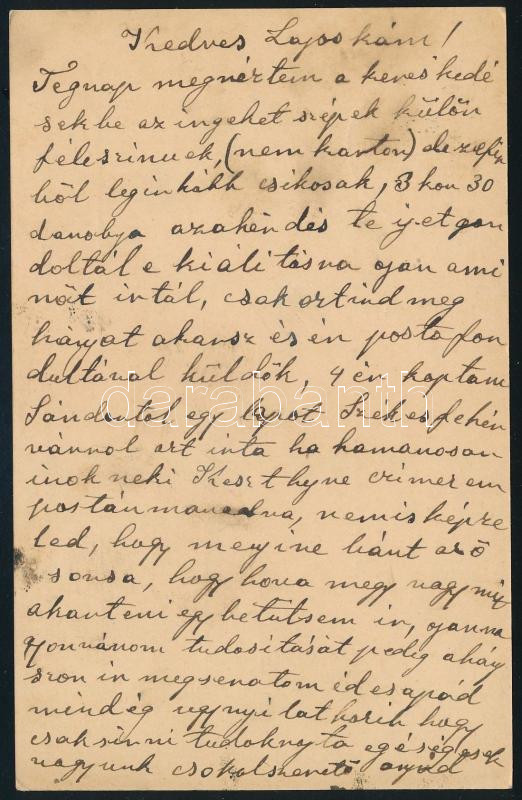 Kedves Lajos kám!
Tegnap megnéztem a keres kedé
sekbe az ingehet szépek külön
féleszinuek, (nem karton) de zefir
ből leginkább csikosak, 3 kon 30
danobja azahéndés te ijet gon
doltál e kiáli tásna ojan ami
nöt intál, csak azt ind meg
hányat akansz és én posta fon
dultával küldök, 4 én kaptam
Sándontol egy lapot Szekesfehén
vánnol azt inta ha hamanosan
inok neki Keszthyne czimezem
postán manadva, nemis képze
led, hogy menyine bánt az ő
sonsa, hogy hova megy vagy mit
akanteni egy betütsem in, ojan na
gyon vánom tudositását pedig ahány
szon in megsenatom édesapád
mindég ugy nyilatkozik hogy
csak sinni tudok nyta egéségesek
vagyunk csokolszenető anyád
darabanth